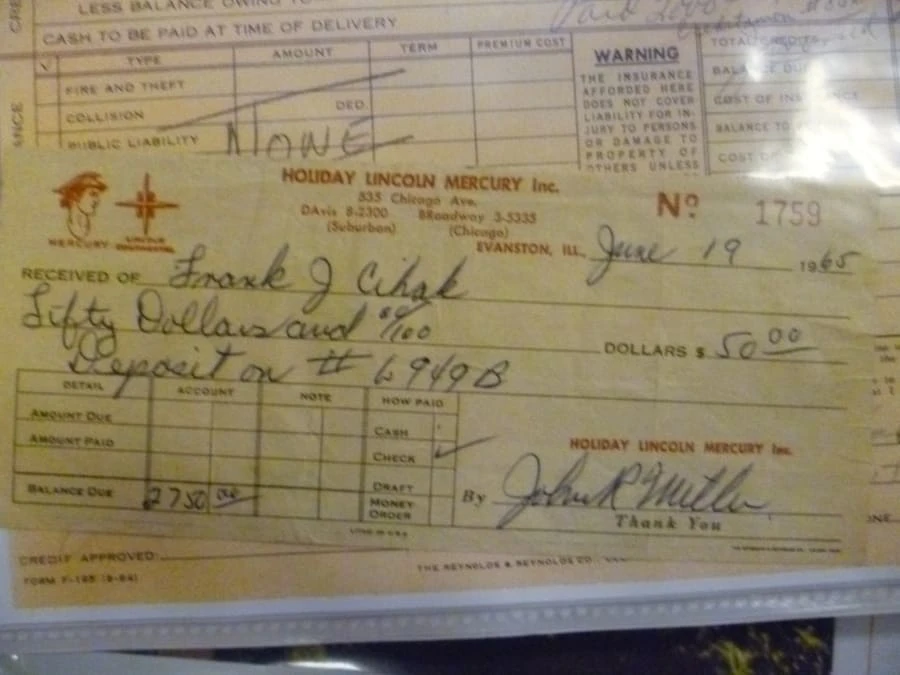 LESS BALANCE OWING TO
CASH TO BE PAID AT TIME OF DELIVERY
Paid
TYPE AMOUNT TERM PREMIUM COST
FIRE AND THEFT
COLLISION DED.
PUBLIC LIABILITY NONE
WARNING
THE INSURANCE
AFFORDED HERE
DOES NOT COVER
LIABILITY FOR IN-
JURY TO PERSONS
OR DAMAGE TO
PROPERTY OF
OTHERS UNLESS
TOTAL CREDITS
BALANCE DUE
COST OF INSURANCE
BALANCE TO
COST
HOLIDAY LINCOLN MERCURY Inc.
535 Chicago Ave.
DAvis 8-2300 BRoadway 3-5335
(Suburban) (Chicago)
MERCURY LINCOLN
CONTINENTAL
Nº 1759
EVANSTON, ILL. June 19 1965
RECEIVED OF Frank J Cihak
Fifty Dollars and 00/100 DOLLARS $ 50 00
Deposit on # 6949B
DETAIL ACCOUNT NOTE HOW PAID
AMOUNT DUE CASH
AMOUNT PAID CHECK ✓
BALANCE DUE 2750 00 DRAFT
MONEY
ORDER
HOLIDAY LINCOLN MERCURY Inc.
By John R Miller
Thank You
CREDIT APPROVED:
FORM F-195 (9-64)
THE REYNOLDS & REYNOLDS CO.